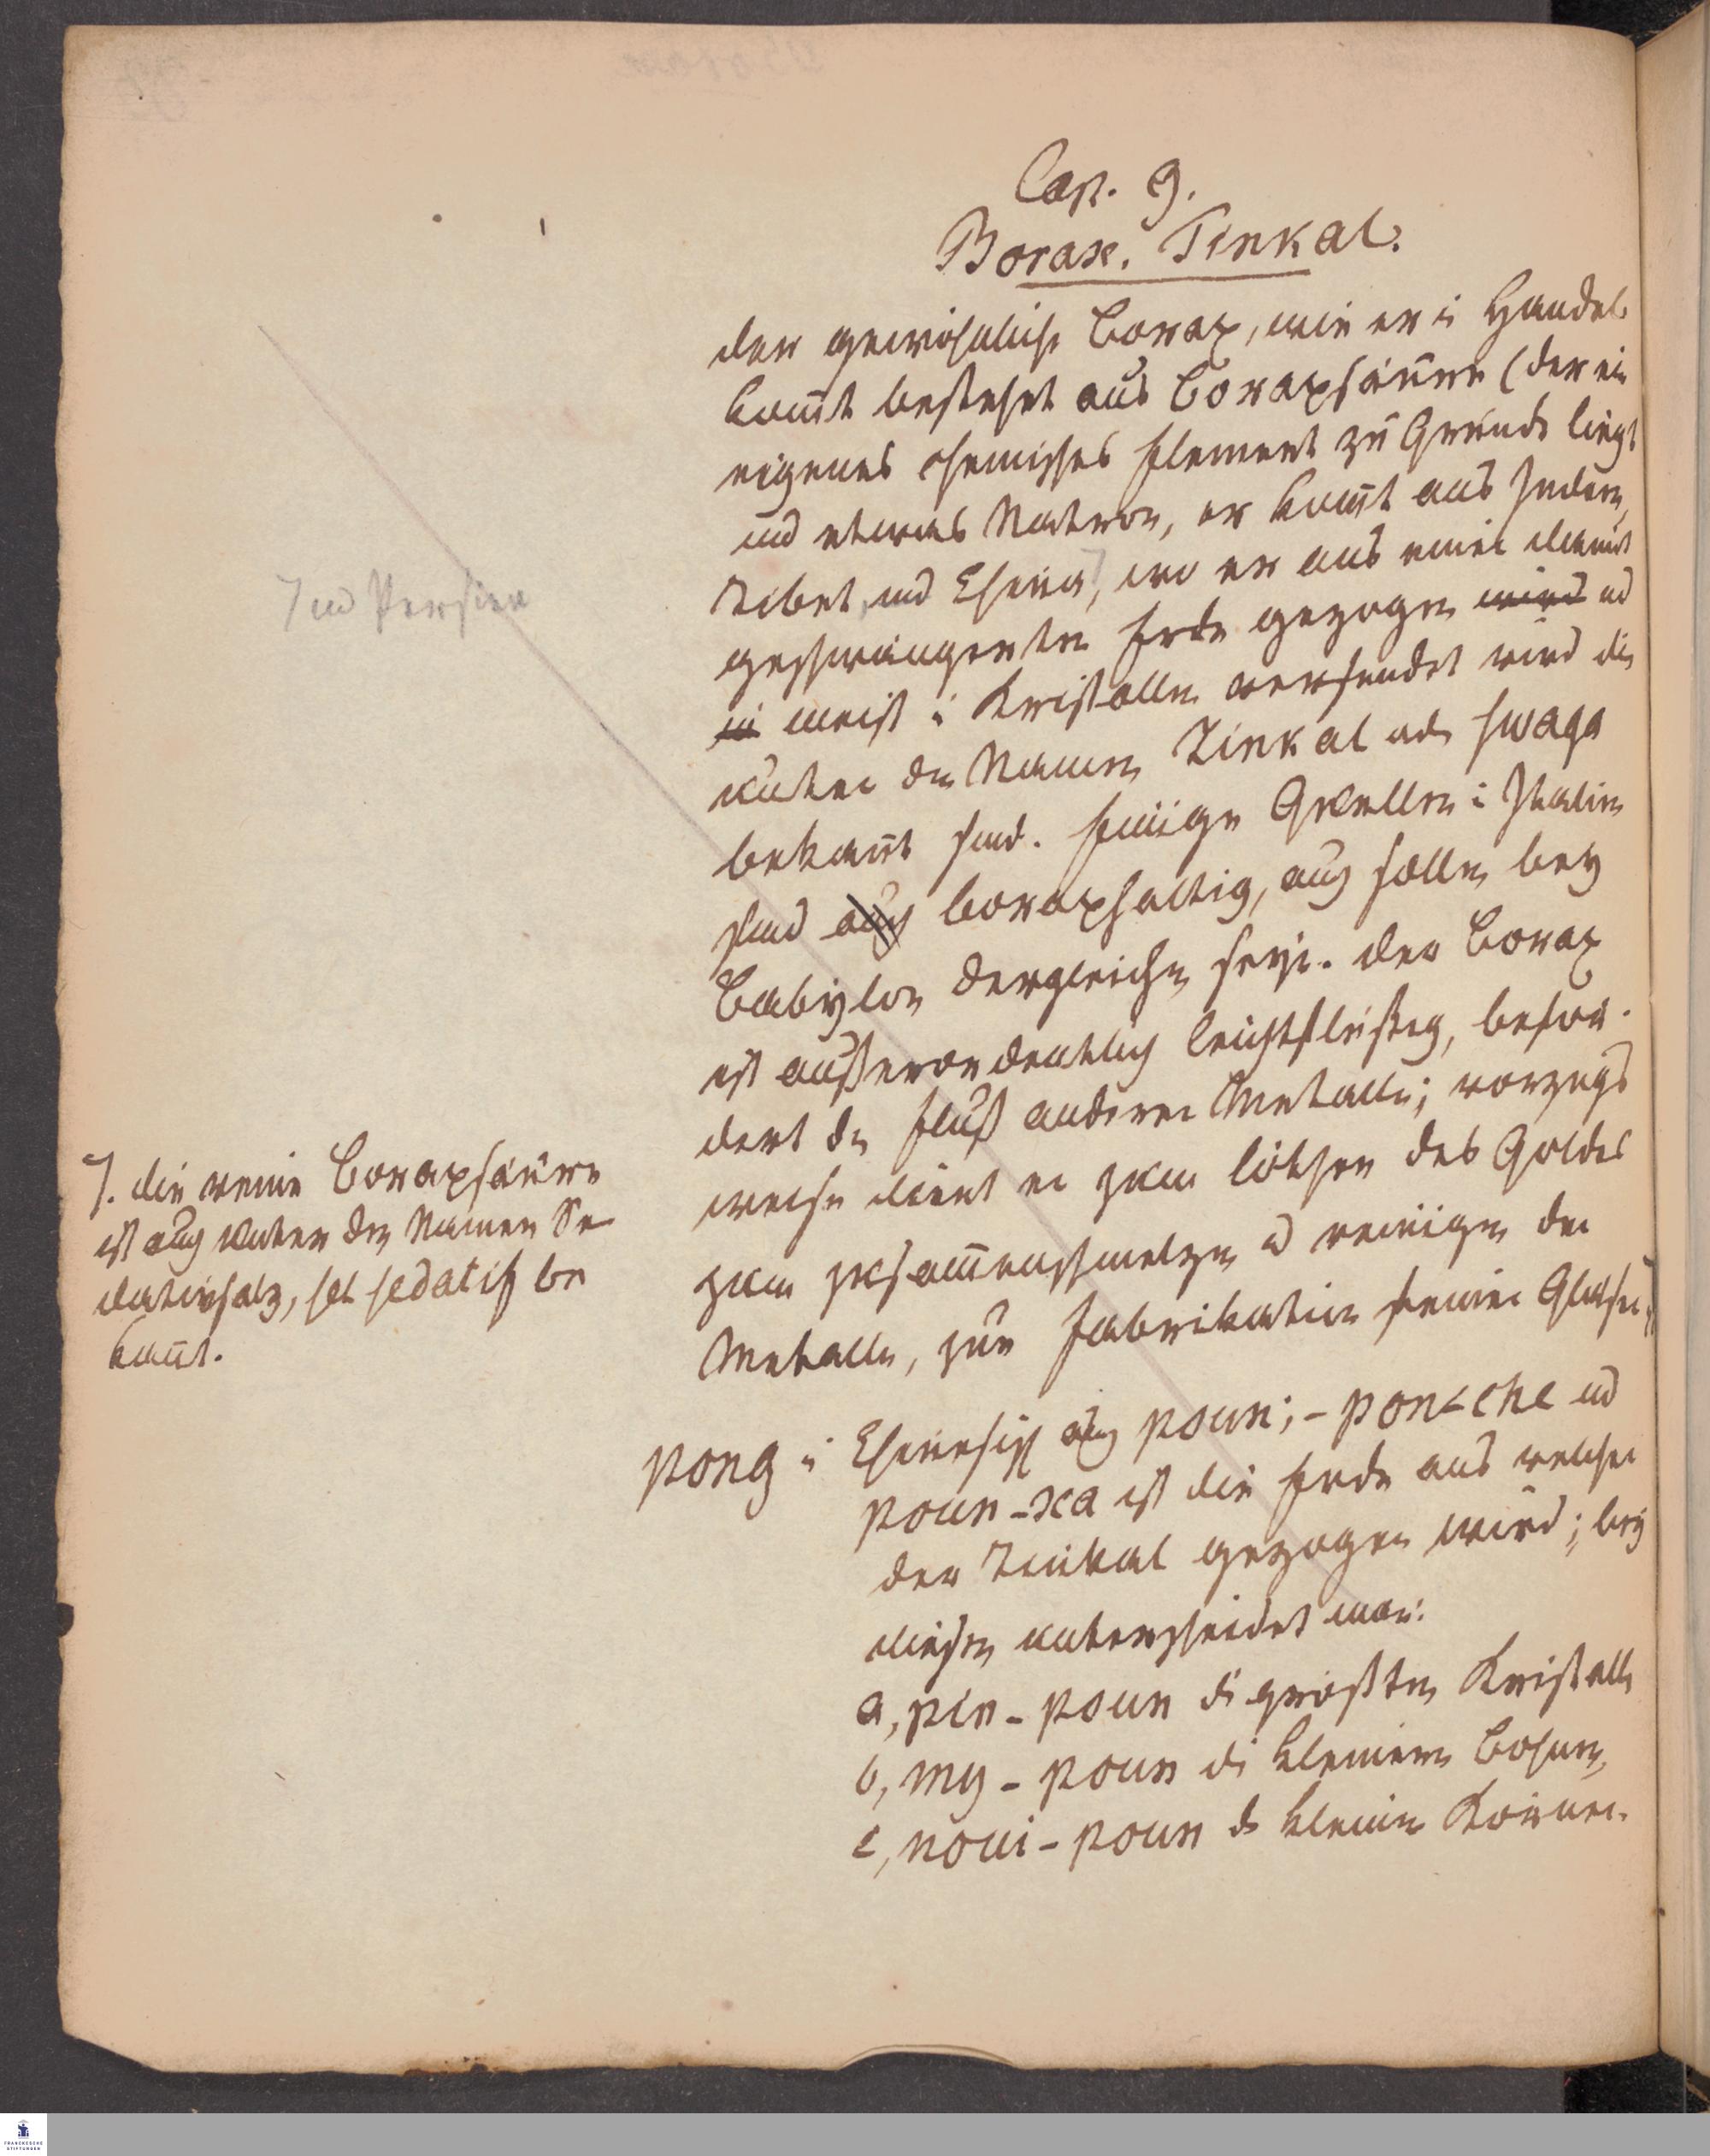 Cap. 9.
Borax. Tinkal.
der gewöhnliche Borax, wie er i Handel
kom̅t bestehet aus Boraxsäure (der ein
eigenes chemisches Element zu Grunde liegt
und etwas Natron, er kom̅t aus Indien,
Tibet, und China ⁊, wo er aus einer damit
geschwängerten Erde gezogen wird ud
in meist i Kristallen versendet wird die
unter den Namen Tinkal od. swaga
bekan̅t sind. Einige Quellen i Italien
sind auch boraxhaltig, auch sollen bey
Babylon dergleichen seyn. der Borax
ist außerordentlich leichtflüßig, beför-
dert den Fluß anderer Metalle; vorzugs
weise dient er zum löthen des Goldes
zum zusam̅enschmelzen u reinigen der
Metalle, zur Fabrikation feiner Gläser ⁊
⁊ und Persien
⁊. die reine Boraxsäure
ist auch unter den Namen Se-
dativsalz, sel sedatif be
kan̅t.
pong i Chinesisch auch poun; - pon-che ud
poun-xa ist die Erde aus welcher
der Tinkal gezogen wird; bey
diesen unterscheidet man:
a, pin - poun die größten Kristalle
b, my - poun die kleinern Bohnen,
c, noui - poun die kleine Körner.
FRANCKESCHE
STIFTUNGEN